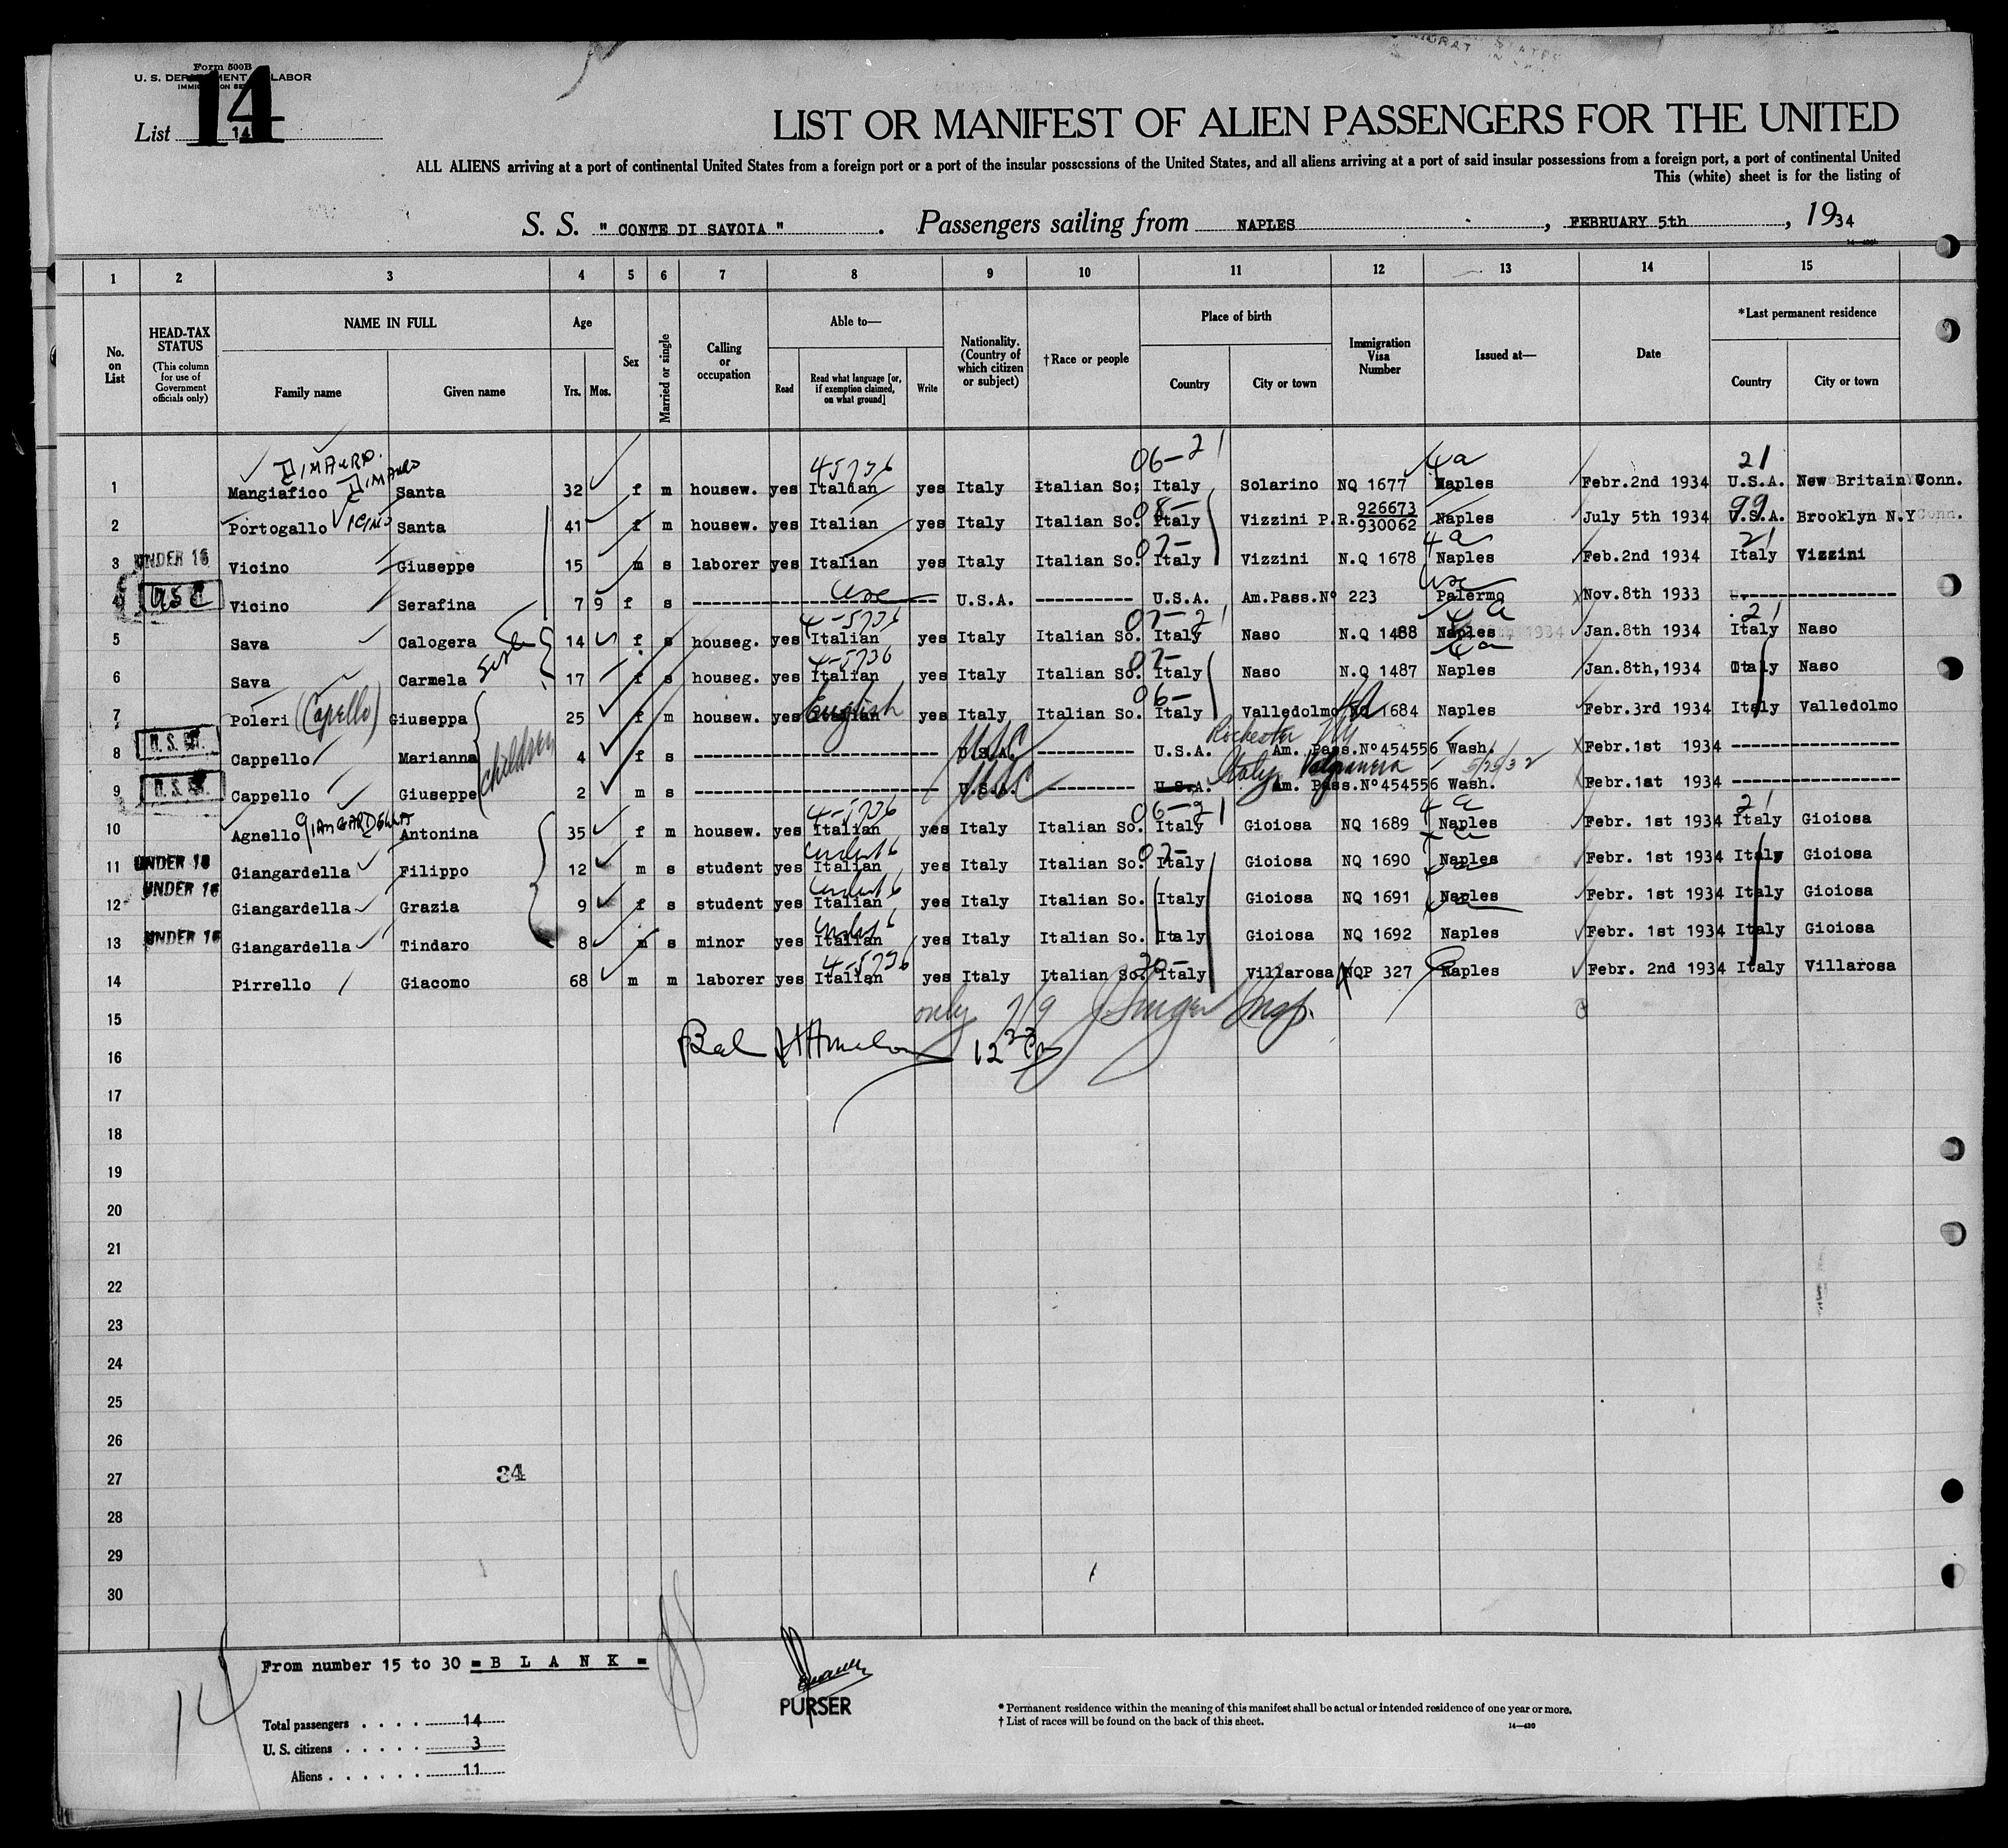 Form 500B
U. S. DEPARTMENT LABOR
14
List 14
LIST OR MANIFEST OF ALIEN PASSENGERS FOR THE UNITED
ALL ALIENS arriving at a port of continental United States from a foreign port or a port of the insular possessions of the United States, and all aliens arriving at a port of said insular possessions from a foreign port, a port of continental United
This (white) sheet is for the listing of
S. S. " CONTE DI SAVOIA " . Passengers sailing from NAPLES , FEBRUARY 5th , 1934
1 2 3 4 5 6 7 8 9 10 11 12 13 14 15
No. on List
HEAD-TAX STATUS (This column for use of Government officials only)
NAME IN FULL Family name Given name
Age Yrs. Mos.
Sex
Married or single
Calling or occupation
Able to— Read Read what language [or, if exemption claimed, on what ground] Write
Nationality. (Country of which citizen or subject)
†Race or people
Place of birth Country City or town
Immigration Visa Number
Issued at—
Date
*Last permanent residence Country City or town
DIMAURO. DIMAURO 45736 06-21 4a 21
1 Mangiafico Santa 32 f m housew. yes Italian yes Italy Italian So; Italy Solarino NQ 1677 Naples Febr.2nd 1934 U.S.A. New Britain Conn.
VICINO 08- 99
2 Portogallo Santa 41 f m housew. yes Italian yes Italy Italian So. Italy Vizzini P.R. 926673 930062 Naples July 5th 1934 U.S.A. Brooklyn N.Y
07- 4a 21
3 UNDER 16 Vicino Giuseppe 15 m s laborer yes Italian yes Italy Italian So. Italy Vizzini N.Q 1678 Naples Feb.2nd 1934 Italy Vizzini
4 USC Vicino Serafina 7 9 f s ---------- usc U.S.A. ---------- U.S.A. Am.Pass.Nº 223 usc Palermo Nov.8th 1933 ----------
4-5736 07-21 4a 21
5 Sava Calogera 14 f s houseg. yes Italian yes Italy Italian So. Italy Naso N.Q 1488 Naples Jan.8th 1934 Italy Naso
4-5736 07- 4a
6 Sava Carmela 17 f s houseg. yes Italian yes Italy Italian So. Italy Naso N.Q 1487 Naples Jan.8th,1934 Italy Naso
English 06-
7 Poleri (Capello) Giuseppa 25 f m housew. yes Italian yes Italy Italian So. Italy Valledolmo 1684 Naples Febr.3rd 1934 Italy Valledolmo
children
USC Rochester NY
8 Cappello Marianna 4 f s ---------- U.S.A. ---------- U.S.A. Am. Pass.Nº454556 Wash. Febr.1st 1934 ----------
USC Italy 5/25/32
9 Cappello Giuseppe 2 m s ---------- U.S.A. ---------- U.S.A. Am. Pass.Nº454556 Wash. Febr.1at 1934 ----------
GIANGARDELLA 4-5736 06-21 4a 21
10 Agnello Antonina 35 f m housew. yes Italian yes Italy Italian So. Italy Gioiosa NQ 1689 Naples Febr. 1st 1934 Italy Gioiosa
under 16 07-
11 UNDER 16 Giangardella Filippo 12 m s student yes Italian yes Italy Italian So. Italy Gioiosa NQ 1690 Naples Febr. 1st 1934 Italy Gioiosa
under 16
12 UNDER 16 Giangardella Grazia 9 f s student yes Italian yes Italy Italian So. Italy Gioiosa NQ 1691 Naples Febr. 1st 1934 Italy Gioiosa
under 16
13 UNDER 16 Giangardella Tindaro 8 m s minor yes Italian yes Italy Italian So. Italy Gioiosa NQ 1692 Naples Febr. 1st 1934 Italy Gioiosa
4-5736
14 Pirrello Giacomo 68 m m laborer yes Italian yes Italy Italian So. Italy Villarosa NQP 327 Naples Febr. 2nd 1934 Italy Villarosa
15 only 7/9 Insp.
16
17
18
19
20
21
22
23
24
25
26
27 34
28
29
30
From number 15 to 30 = B L A N K =
14
PURSER
Total passengers . . . . 14
U. S. citizens . . . . . 3
Aliens . . . . . . 11
* Permanent residence within the meaning of this manifest shall be actual or intended residence of one year or more.
† List of races will be found on the back of this sheet.
14—430